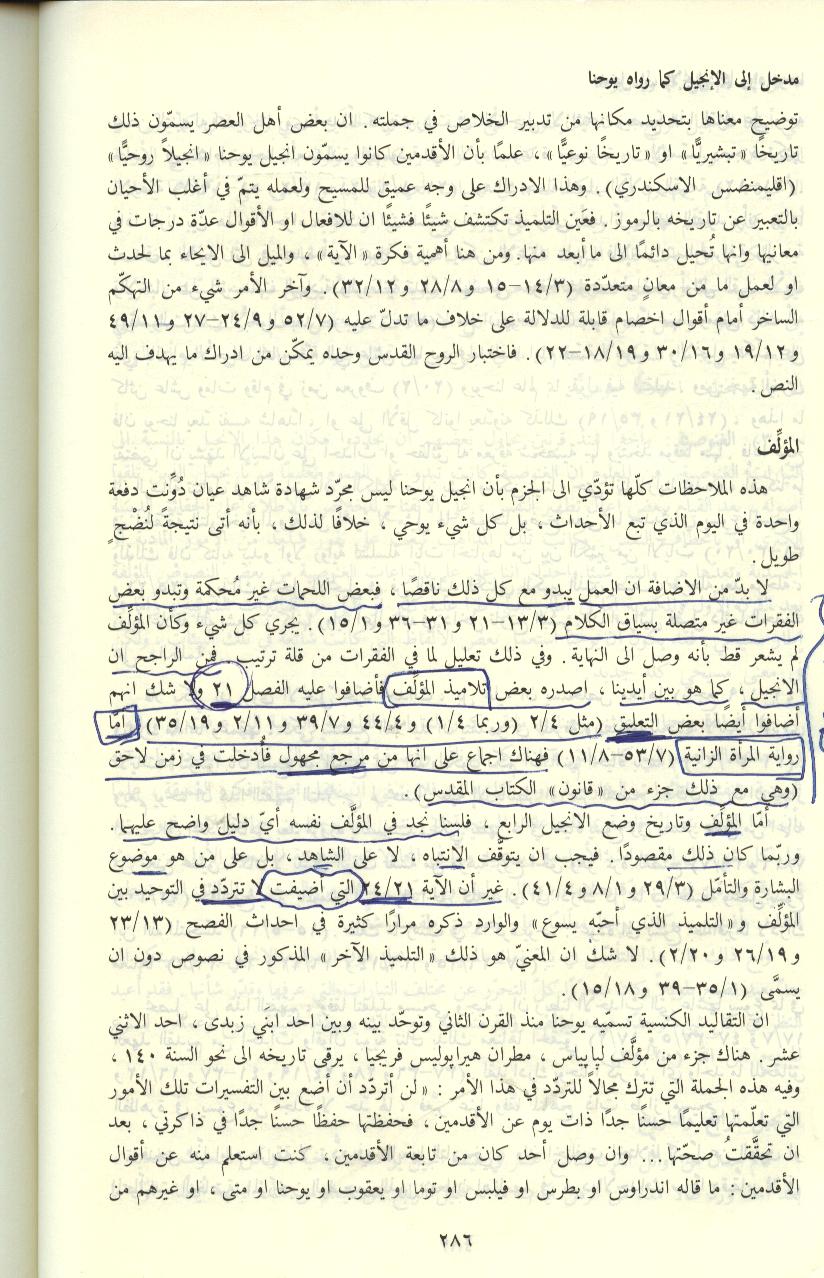 مدخل إلى الإنجيل كما رواه يوحنا
توضيح معناها بتحديد مكانها من تدبير الخلاص في جملته. ان بعض أهل العصر يسمّون ذلك
تاريخًا «تبشيريًّا» او «تاريخًا نوعيًّا» ، علمًا بأن الأقدمين كانوا يسمّون انجيل يوحنا «انجيلاً روحيًّا»
(اقليمنضس الاسكندري). وهذا الادراك على وجه عميق للمسيح ولعمله يتمّ في أغلب الأحيان
بالتعبير عن تاريخه بالرموز. فعَين التلميذ تكتشف شيئًا فشيئًا ان للافعال او الأقوال عدّة درجات في
معانيها وانها تُحيل دائمًا الى ما أبعد منها. ومن هنا أهمية فكرة «الآية» ، والميل الى الايحاء بما لحدث
او لعمل ما من معانٍ متعدّدة (١٤/٣–١٥ و٢٨/٨ و٣٢/١٢). وآخر الأمر شيء من التهكّم
الساخر أمام أقوال اخصام قابلة للدلالة على خلاف ما تدلّ عليه (٥٢/٧ و٢٤/٩–٢٧ و٤٩/١١
و١٩/١٢ و٣٠/١٦ و١٨/١٩–٢٢). فاختبار الروح القدس وحده يمكّن من ادراك ما يهدف اليه
النص.
المؤلِّف
هذه الملاحظات كلّها تؤدّي الى الجزم بأن انجيل يوحنا ليس مجرّد شهادة شاهد عيان دُوِّنت دفعة
واحدة في اليوم الذي تبع الأحداث ، بل كل شيء يوحي ، خلافًا لذلك ، بأنه أتى نتيجةً لنُضْجٍ
طويل.
لا بدّ من الاضافة ان العمل يبدو مع كل ذلك ناقصًا ، فبعض اللحمات غير مُحكمة وتبدو بعض
الفقرات غير متصلة بسياق الكلام (١٣/٣–٢١ و٣١–٣٦ و١٥/١). يجري كل شيء وكأن المؤلِّف
لم يشعر قط بأنه وصل الى النهاية. وفي ذلك تعليل لما في الفقرات من قلة ترتيب. فمن الراجح ان
الانجيل ، كما هو بين أيدينا ، اصدره بعض تلاميذ المؤلِّف فأضافوا عليه الفصل ٢١ ولا شك انهم
أضافوا أيضًا بعض التعليق (مثل ٢/٤ (وربما ١/٤) و٤٤/٤ و٣٩/٧ و٢/١١ و٣٥/١٩) أمّا
رواية المرأة الزانية (٥٣/٧–١١/٨) فهناك اجماع على انها من مرجع مجهول فأُدخلت في زمن لاحق
(وهي مع ذلك جزء من «قانون» الكتاب المقدس).
أمّا المؤلِّف وتاريخ وضع الانجيل الرابع ، فلسنا نجد في المؤلَّف نفسه أيّ دليل واضح عليهما.
وربّما كان ذلك مقصودًا. فيجب ان يتوقّف الانتباه ، لا على الشاهد ، بل على من هو موضوع
البشارة والتأمّل (٢٩/٣ و٨/١ و٤١/٤). غير أن الآية ٢٤/٢١ التي أضيفت لا تتردّد في التوحيد بين
المؤلِّف و«التلميذ الذي أحبّه يسوع» والوارد ذكره مرارًا كثيرة في احداث الفصح (٢٣/١٣
و٢٦/١٩ و٢/٢٠). لا شك ان المعنيّ هو ذلك «التلميذ الآخر» المذكور في نصوص دون ان
يسمَّى (٣٥/١–٣٩ و١٥/١٨).
ان التقاليد الكنسية تسمّيه يوحنا منذ القرن الثاني وتوحّد بينه وبين احد ابنَي زبدى ، احد الاثني
عشر. هناك جزء من مؤلَّف لپاپياس ، مطران هيراپوليس فريجيا ، يرقى تاريخه الى نحو السنة ١٤٠ ،
وفيه هذه الجملة التي تترك مجالاً للتردّد في هذا الأمر : «لن أتردّد أن أضع بين التفسيرات تلك الأمور
التي تعلّمتها تعليمًا حسنًا جدًا ذات يوم عن الأقدمين ، فحفظتها حفظًا حسنًا جدًا في ذاكرتي ، بعد
ان تحقّقتُ صحّتها... وان وصل أحد كان من تابعة الأقدمين، كنت استعلم منه عن أقوال
الأقدمين : ما قاله اندراوس او بطرس او فيلبس او توما او يعقوب او يوحنا او متى ، او غيرهم من
٢٨٦